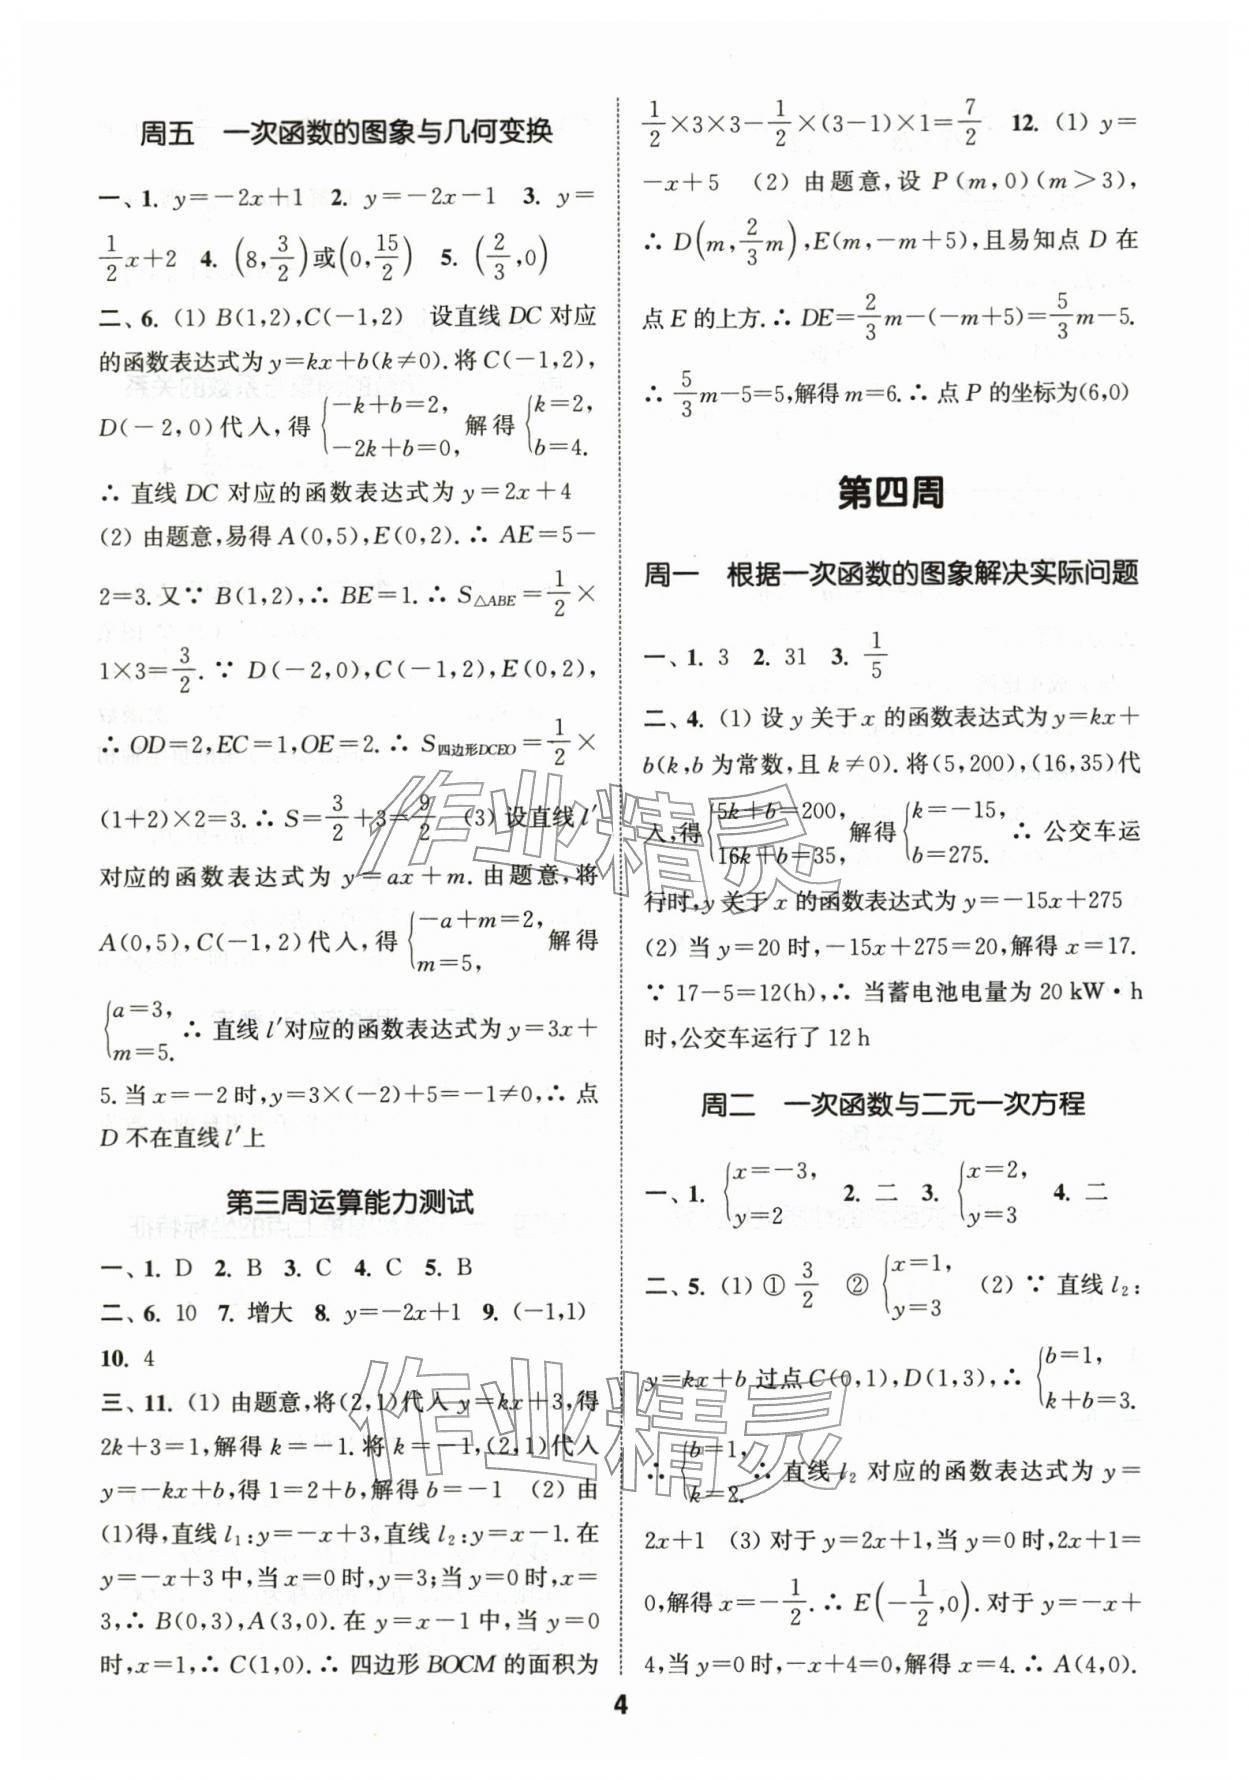 周五　一次函数的图象与几何变换
一、1. y=-2x+1　2. y=-2x-1　3. y=
1/2 x+2　4. (8,3/2)或(0,15/2)　5. (2/3,0)
二、6. (1) B(1,2),C(-1,2)　设直线 DC 对应
的函数表达式为 y=kx+b(k≠0).将 C(-1,2),
D(-2,0)代入,得{-k+b=2, -2k+b=0, 解得{k=2, b=4.
∴ 直线 DC 对应的函数表达式为 y=2x+4
(2) 由题意,易得 A(0,5),E(0,2).∴ AE=5-
2=3.又∵ B(1,2),∴ BE=1.∴ S△ABE=1/2×
1×3=3/2.∵ D(-2,0),C(-1,2),E(0,2),
∴ OD=2,EC=1,OE=2.∴ S四边形DCEO=1/2×
(1+2)×2=3.∴ S=3/2+3=9/2　(3) 设直线 l′
对应的函数表达式为 y=ax+m.由题意,将
A(0,5),C(-1,2)代入,得{-a+m=2, m=5, 解得
{a=3, m=5. ∴ 直线 l′对应的函数表达式为 y=3x+
5.当 x=-2 时,y=3×(-2)+5=-1≠0,∴ 点
D 不在直线 l′上
第三周运算能力测试
一、1. D　2. B　3. C　4. C　5. B
二、6. 10　7. 增大　8. y=-2x+1　9. (-1,1)
10. 4
三、11. (1) 由题意,将(2,1)代入 y=kx+3,得
2k+3=1,解得 k=-1.将 k=-1,(2,1)代入
y=-kx+b,得 1=2+b,解得 b=-1　(2) 由
(1)得,直线 l₁:y=-x+3,直线 l₂:y=x-1.在
y=-x+3 中,当 x=0 时,y=3;当 y=0 时,x=
3,∴ B(0,3),A(3,0).在 y=x-1 中,当 y=0
时,x=1,∴ C(1,0).∴ 四边形 BOCM 的面积为
1/2×3×3-1/2×(3-1)×1=7/2　12. (1) y=
-x+5　(2) 由题意,设 P(m,0)(m>3),
∴ D(m,2/3 m),E(m,-m+5),且易知点 D 在
点 E 的上方.∴ DE=2/3 m-(-m+5)=5/3 m-5.
∴ 5/3 m-5=5,解得 m=6.∴ 点 P 的坐标为(6,0)
第四周
周一　根据一次函数的图象解决实际问题
一、1. 3　2. 31　3. 1/5
二、4. (1) 设 y 关于 x 的函数表达式为 y=kx+
b(k,b 为常数,且 k≠0).将(5,200),(16,35)代
入,得{5k+b=200, 16k+b=35, 解得{k=-15, b=275. ∴ 公交车运
行时,y 关于 x 的函数表达式为 y=-15x+275
(2) 当 y=20 时,-15x+275=20,解得 x=17.
∵ 17-5=12(h),∴ 当蓄电池电量为 20 kW·h
时,公交车运行了 12 h
周二　一次函数与二元一次方程
一、1. {x=-3, y=2　2. 二　3. {x=2, y=3　4. 二
二、5. (1) ① 3/2　② {x=1, y=3　(2) ∵ 直线 l₂:
y=kx+b 过点 C(0,1),D(1,3),∴ {b=1, k+b=3.
∴ {b=1, k=2. ∴ 直线 l₂ 对应的函数表达式为 y=
2x+1　(3) 对于 y=2x+1,当 y=0 时,2x+1=
0,解得 x=-1/2.∴ E(-1/2,0).对于 y=-x+
4,当 y=0 时,-x+4=0,解得 x=4.∴ A(4,0).
4
作业精灵
作业精灵